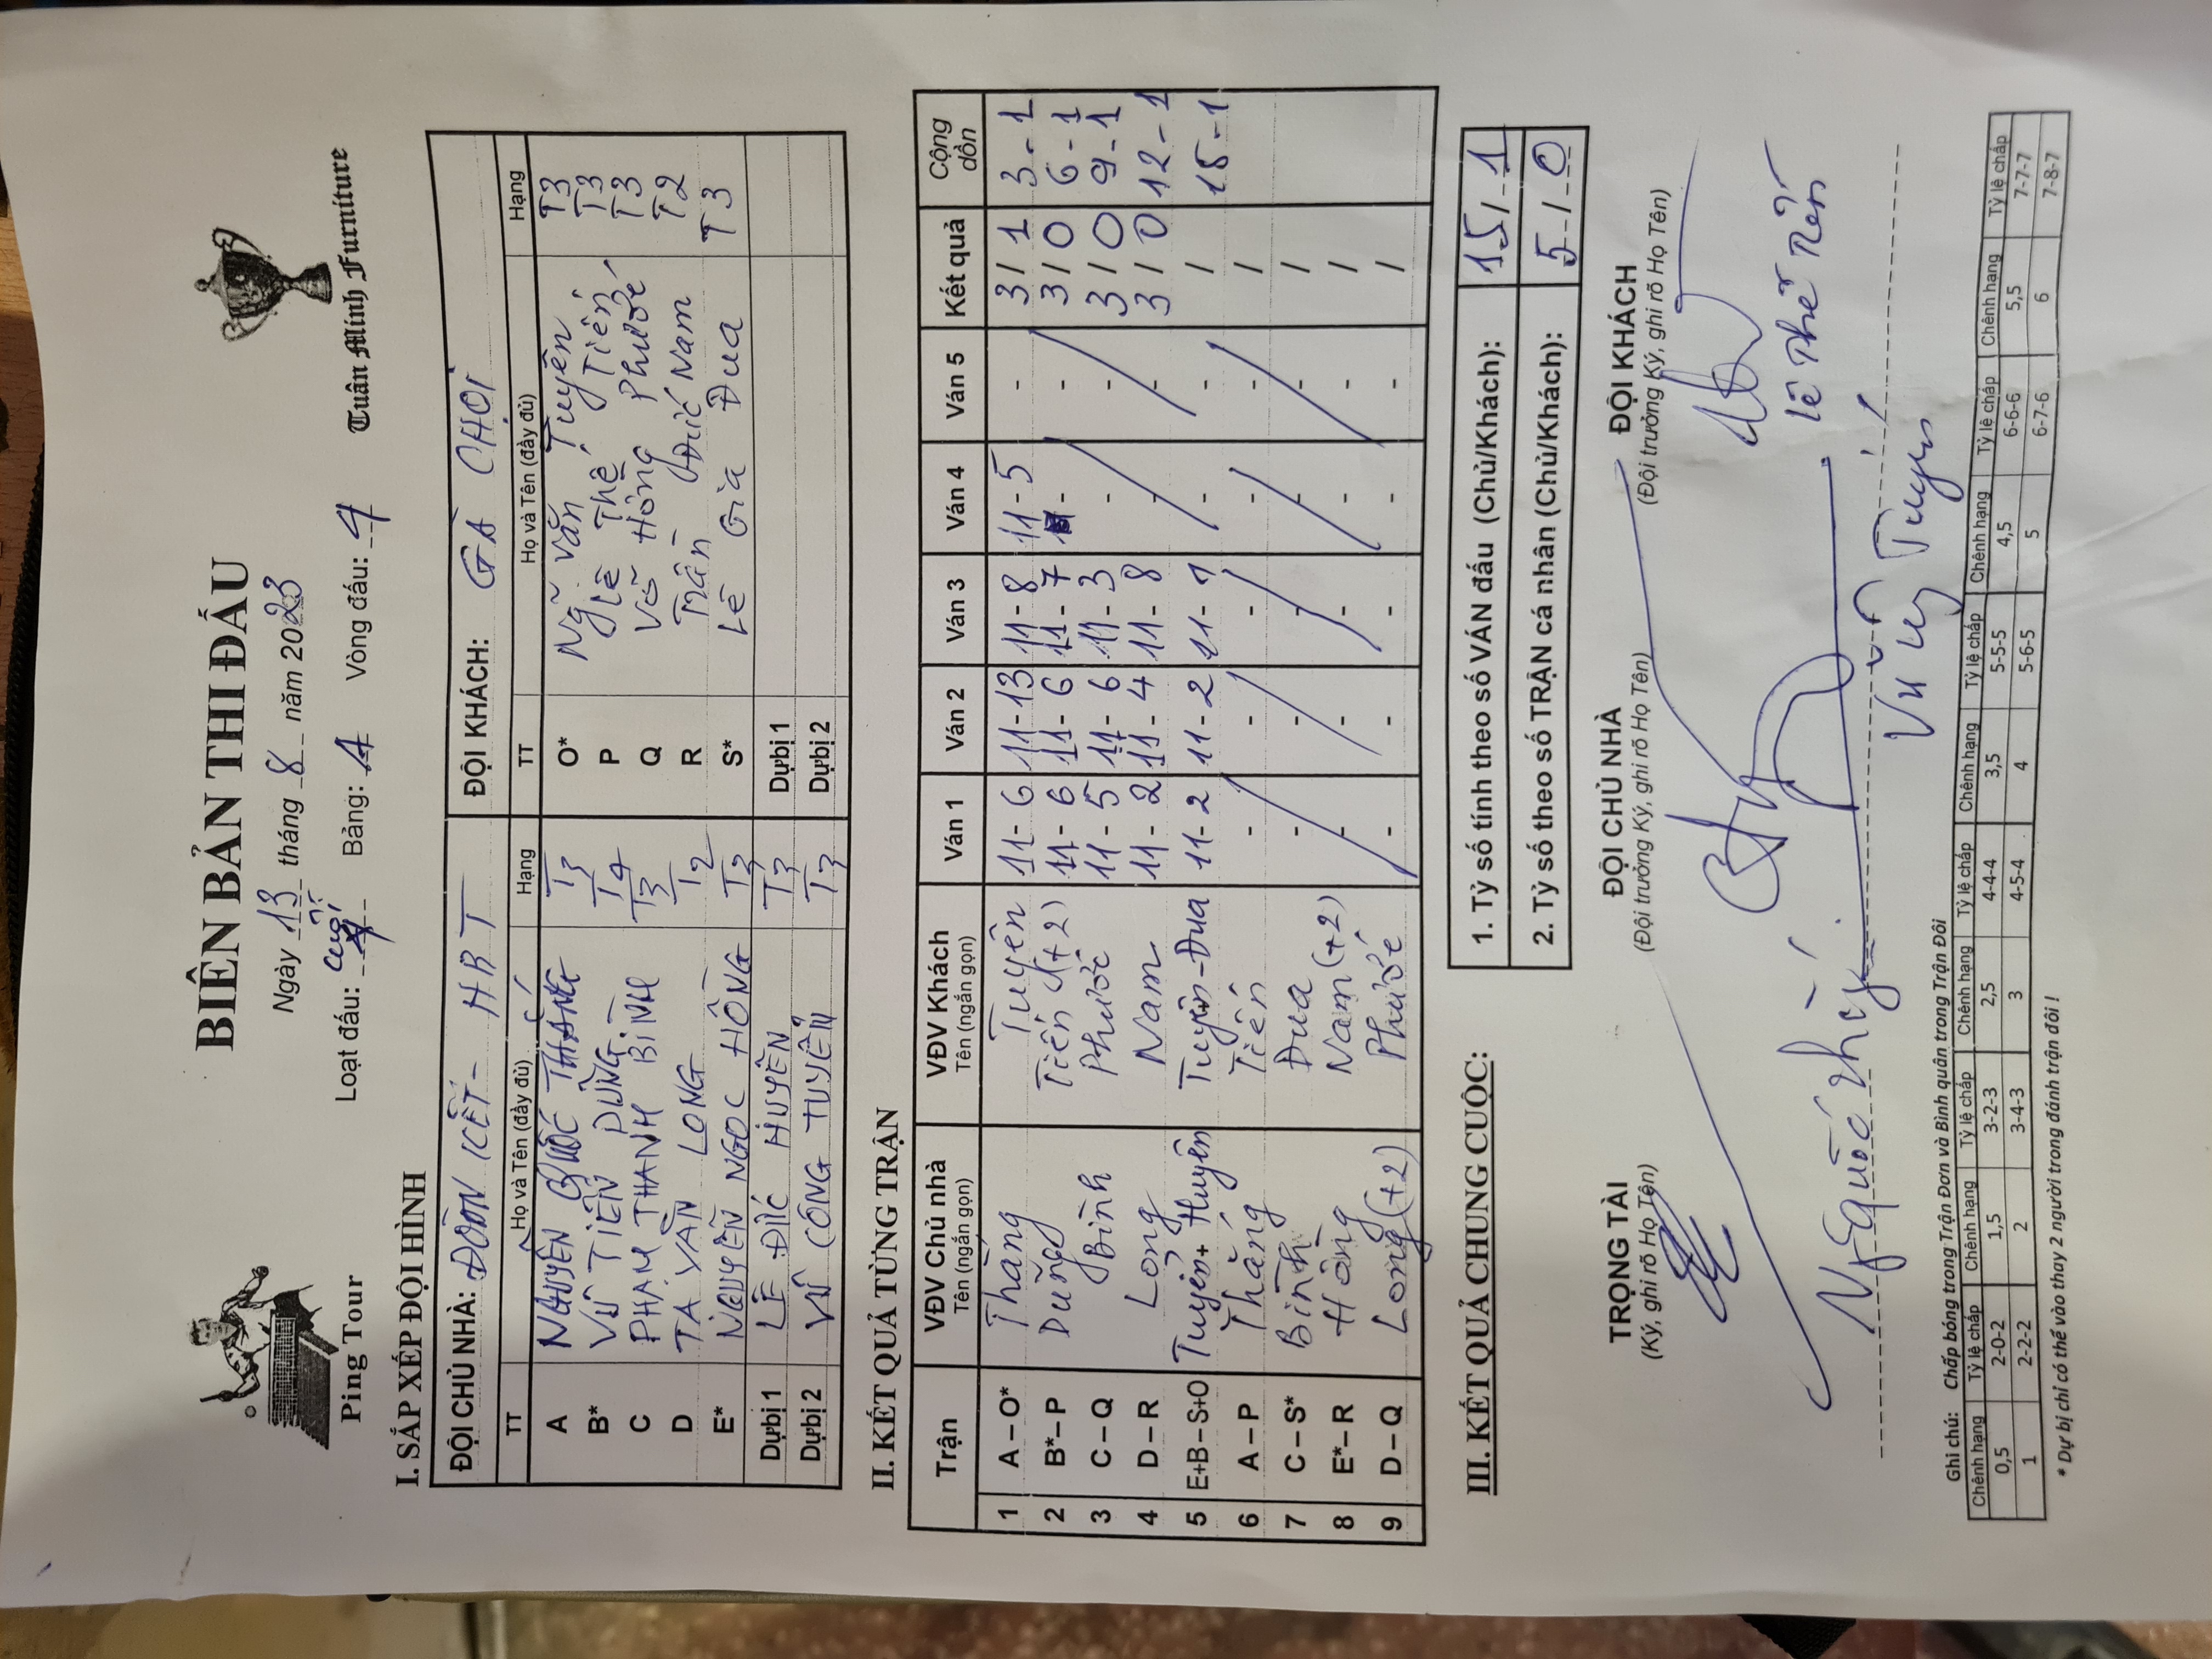 BIÊN BẢN THI ĐẤU
Ping Tour
Tuân Minh Furniture
Ngày 13 tháng 8 năm 2023
Loạt đấu: cuối Bảng: A Vòng đấu: 4
I. SẮP XẾP ĐỘI HÌNH
ĐỘI CHỦ NHÀ: ĐOÀN KẾT - HBT ĐỘI KHÁCH: GÀ CHỌI
TT Họ và Tên (đầy đủ) Hạng TT Họ và Tên (đầy đủ) Hạng
A NGUYỄN QUỐC THẮNG T3 O* Ng Văn Tuyên T3
B* VŨ TIẾN DŨNG T4 P Lê Thế Tiến T3
C PHẠM THANH BÌNH T3 Q Võ Hồng Phước T3
D TẠ VĂN LONG T2 R Trần Đức Nam T2
E* NGUYỄN NGỌC HỒNG T3 S* Lê Gia Đua T3
Dự bị 1 LÊ ĐỨC HUYÊN T3 Dự bị 1
Dự bị 2 VŨ CÔNG TUYỂN T3 Dự bị 2
II. KẾT QUẢ TỪNG TRẬN
Trận VĐV Chủ nhà VĐV Khách Ván 1 Ván 2 Ván 3 Ván 4 Ván 5 Kết quả Cộng dồn
Tên (ngắn gọn) Tên (ngắn gọn)
1 A – O* Thắng Tuyên 11 - 6 11 - 13 11 - 8 11 - 5 - 3 / 1 3 - 1
2 B* – P Dũng Tiến (+2) 11 - 6 11 - 6 11 - 7 - - 3 / 0 6 - 1
3 C – Q Bình Phước 11 - 5 11 - 6 11 - 3 - - 3 / 0 9 - 1
4 D – R Long Nam 11 - 2 11 - 4 11 - 8 - - 3 / 0 12 - 1
5 E+B – S+O Tuyển + Huyên Tuyên - Đua 11 - 2 11 - 2 11 - 7 - - / 15 - 1
6 A – P Thắng Tiến - - - - - /
7 C – S* Bình Đua - - - - - /
8 E* – R Hồng Nam (+2) - - - - - /
9 D – Q Long (+2) Phước - - - - - /
III. KẾT QUẢ CHUNG CUỘC:
1. Tỷ số tính theo số VÁN đấu (Chủ/Khách): 15 / 1
2. Tỷ số theo số TRẬN cá nhân (Chủ/Khách): 5 / 0
TRỌNG TÀI ĐỘI CHỦ NHÀ ĐỘI KHÁCH
(Ký, ghi rõ Họ Tên) (Đội trưởng Ký, ghi rõ Họ Tên) (Đội trưởng Ký, ghi rõ Họ Tên)
Lê Thế Tiến
Ghi chú: Chấp bóng trong Trận Đơn và Bình quân trong Trận Đôi
Chênh hạng Tỷ lệ chấp Chênh hạng Tỷ lệ chấp Chênh hạng Tỷ lệ chấp Chênh hạng Tỷ lệ chấp Chênh hạng Tỷ lệ chấp Chênh hạng Tỷ lệ chấp
0,5 2-0-2 1,5 3-2-3 2,5 4-4-4 3,5 5-5-5 4,5 6-6-6 5,5 7-7-7
1 2-2-2 2 3-4-3 3 4-5-4 4 5-6-5 5 6-7-6 6 7-8-7
* Dự bị chỉ có thể vào thay 2 người trong đánh trận đôi !